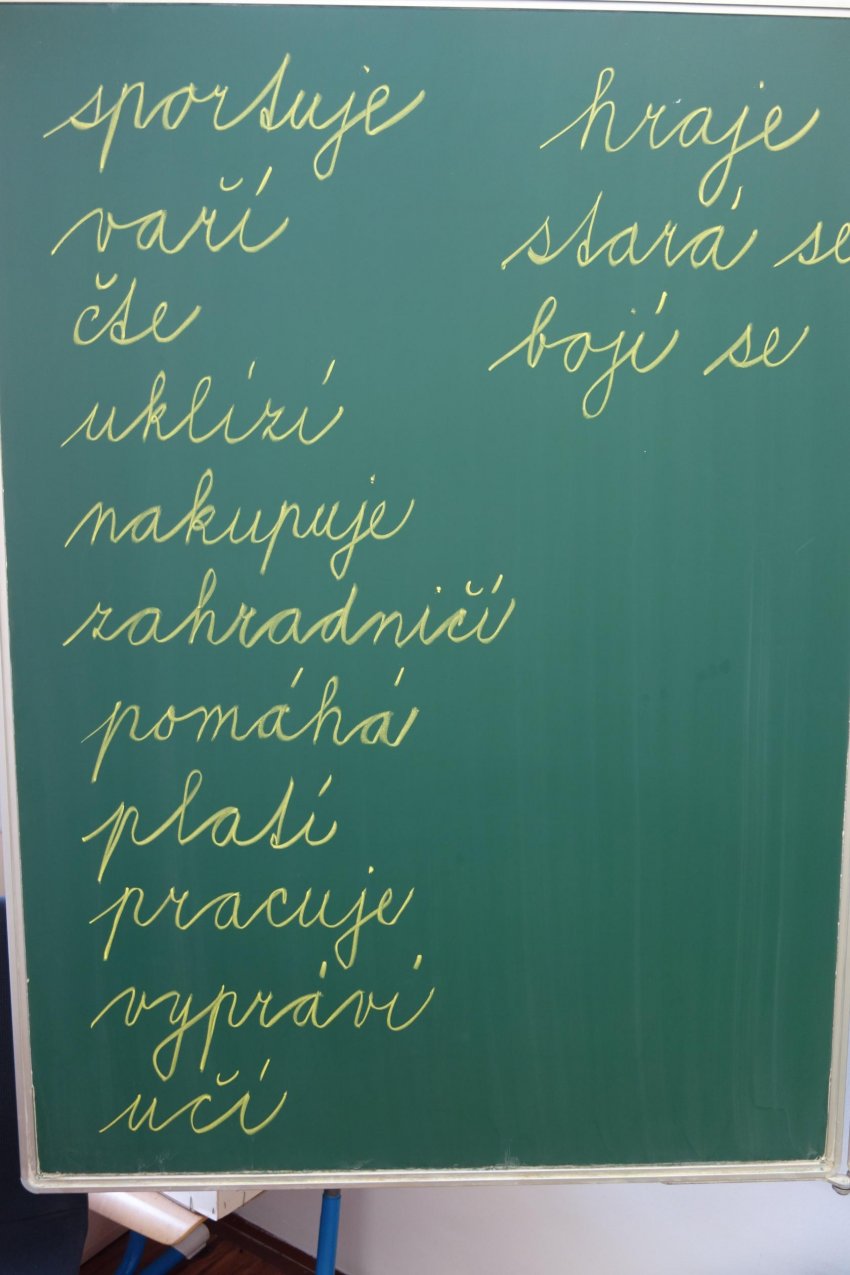 sportuje
vaří
čte
uklízí
nakupuje
zahradničí
pomáhá
platí
pracuje
vypráví
učí
hraje
stará se
bojí se